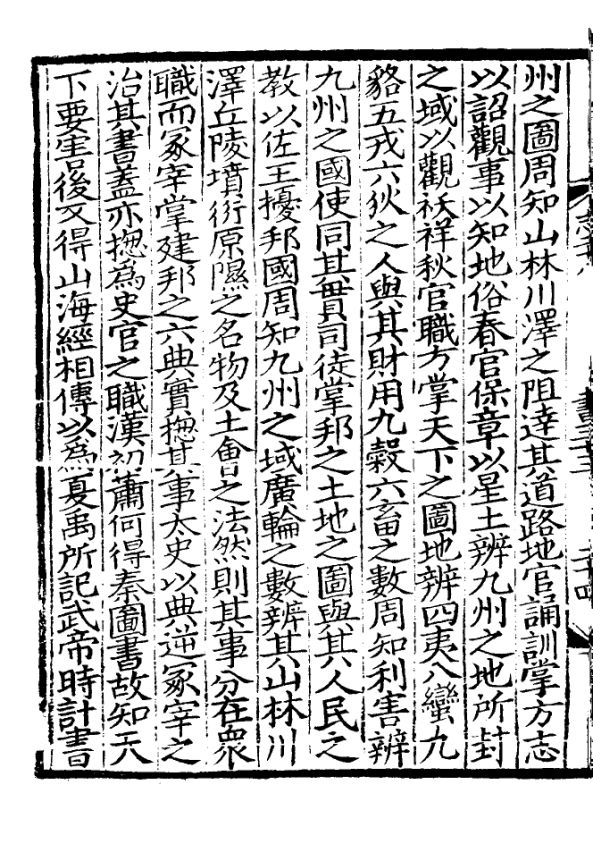 州之圖周知山林川澤之阻達其道路地官誦訓掌方志
以詔觀事以知地俗春官保章以星土辨九州之地所封
之域以觀祅祥秋官職方掌天下之圖地辨四夷八蠻九
貉五戎六狄之人與其財用九穀六畜之數周知利害辨
九州之國使同其貫司徒掌邦之土地之圖與其人民之
教以佐王擾邦國周知九州之域廣輪之數辨其山林川
澤丘陵墳衍原隰之名物及土會之法然則其事分在衆
職而冢宰掌建邦之六典實揔其事太史以典逆冢宰之
治其書蓋亦揔爲史官之職漢初蕭何得秦圖書故知天
下要害後又得山海經相傳以爲夏禹所記武帝時計書